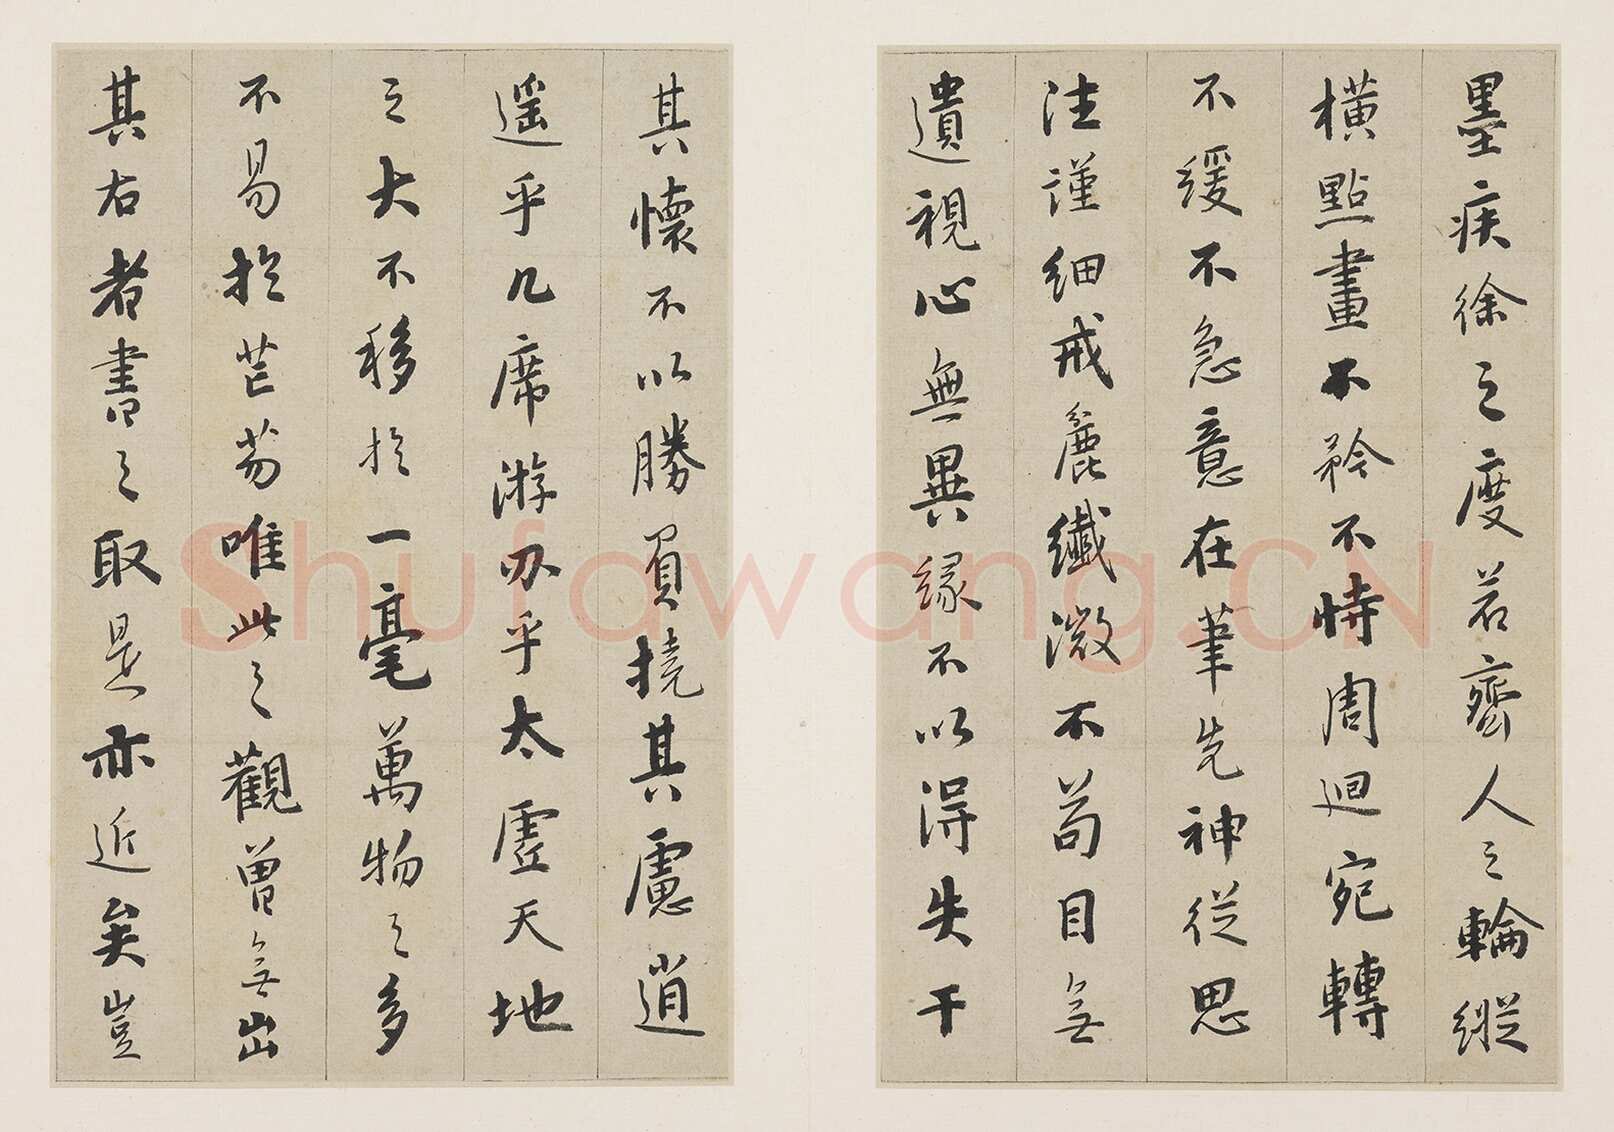 墨疾徐之度若齋人之輪縱
橫點畫不矜不恃周迴宛轉
不緩不急意在筆先神從思
注謹細戒麁纖微不苟目無
遺視心無異緣不以得失干
其懷不以勝負撓其慮逍
遥乎几席游刃乎太虛天地
之大不移於一毫萬物之多
不易於芒芴唯此之觀曾無出
其右者書之取是亦近矣豈
Shufawang.CN